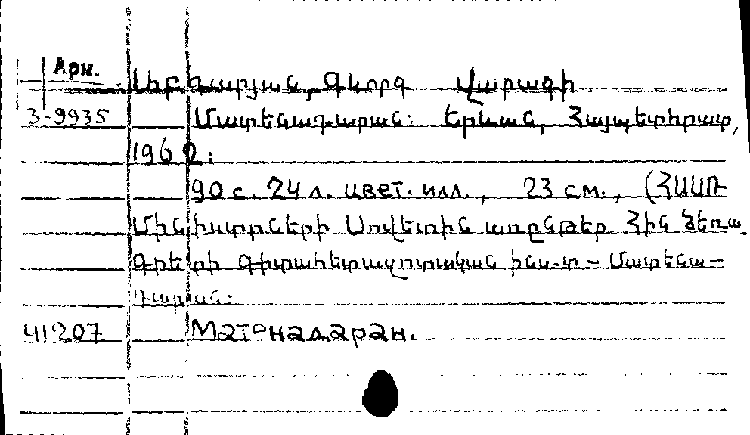 Арм.
Աբգարյան, Գևորգ Վարագի
3-9935 Մատենադարան: Երևան, Հայպետհրատ,
1962:
90 с. 24 л. цвет. илл., 23 см., (ՀՍՍՌ
Մինիստրների Սովետին առընթեր Հին ձեռա
գրերի գիտահետազոտական ինս-տ - Մատենա-
դարան:
41207 Матенадаран.